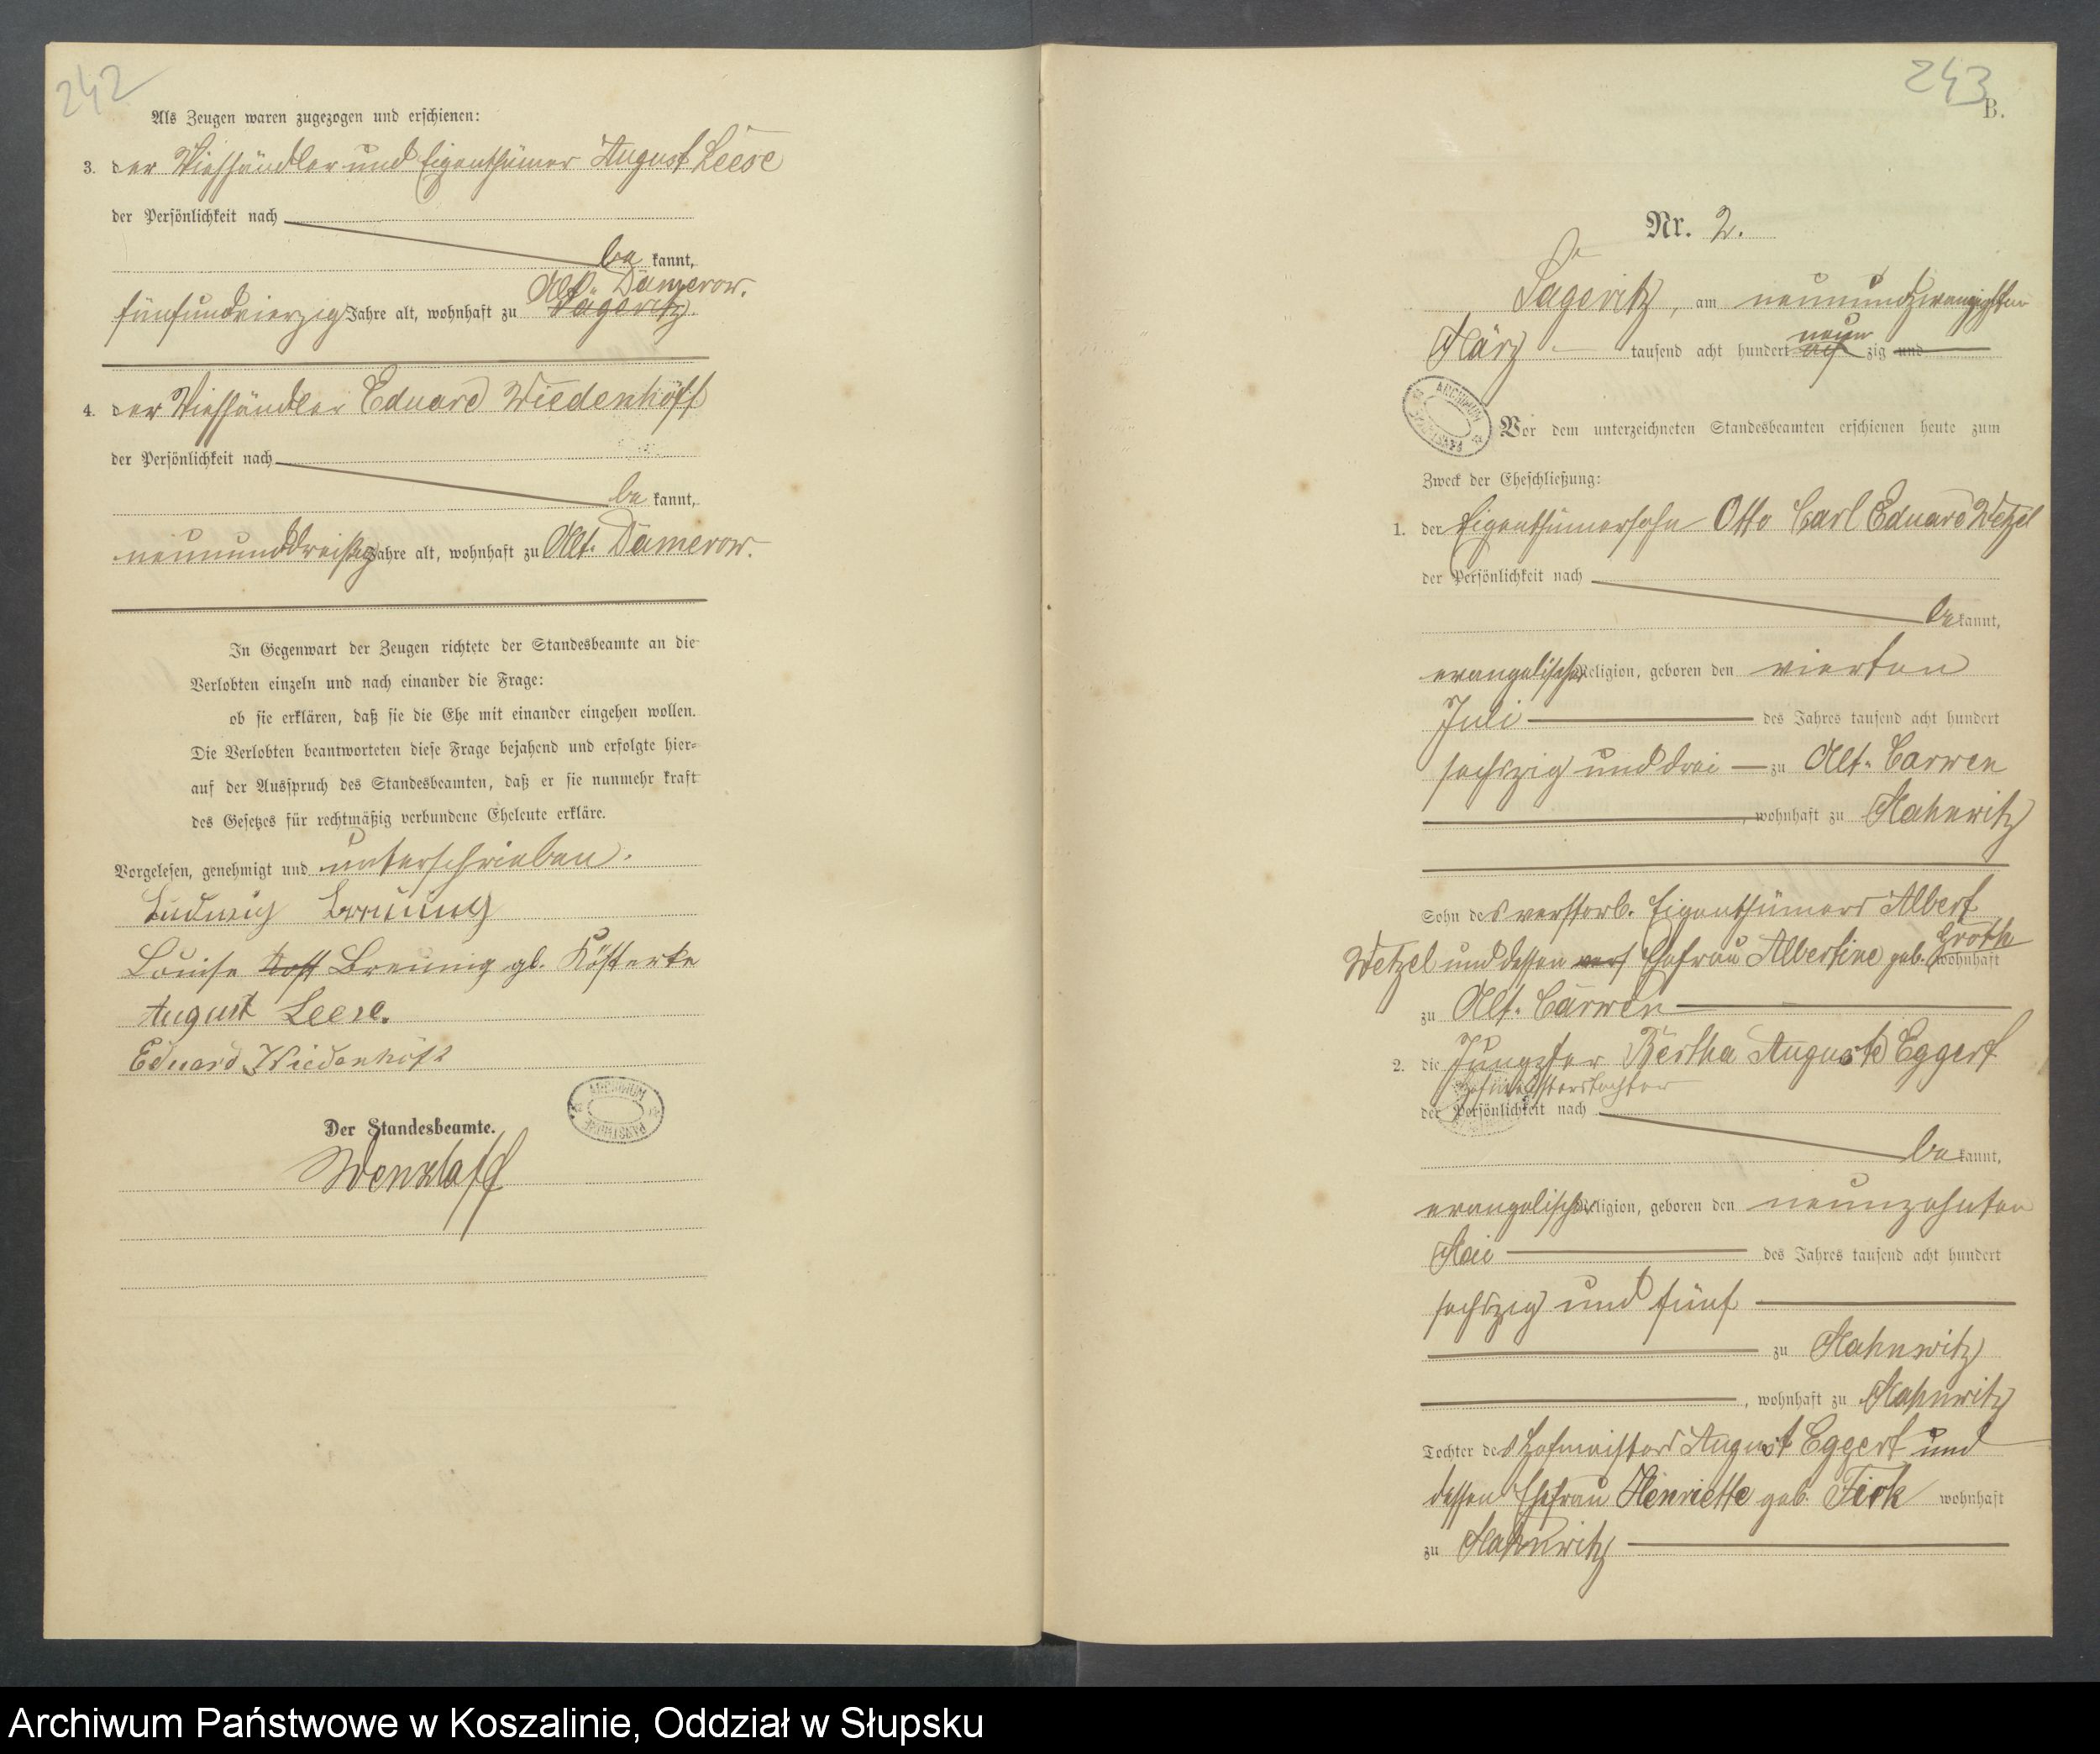 242
Als Zeugen waren zugezogen und erschienen:
3. der Viehhändler und Eigenthümer August Leese
der Persönlichkeit nach
be kannt,
Alt-Damerow.
fünfundvierzig Jahre alt, wohnhaft zu Sageritz.
4. der Viehhändler Eduard Wiedenhöft
der Persönlichkeit nach
be kannt,
neununddreißig Jahre alt, wohnhaft zu Alt-Damerow.
In Gegenwart der Zeugen richtete der Standesbeamte an die
Verlobten einzeln und nach einander die Frage:
ob sie erklären, daß sie die Ehe mit einander eingehen wollen.
Die Verlobten beantworteten diese Frage bejahend und erfolgte hier-
auf der Ausspruch des Standesbeamten, daß er sie nunmehr kraft
des Gesetzes für rechtmäßig verbundene Eheleute erkläre.
Vorgelesen, genehmigt und unterschrieben.
Ludwig Breunig
Louise Breunig gb. Kösterke
August Leese.
Eduard Wiedenhöft
Der Standesbeamte.
ARCHIWUM
Wenzlaff
243
B.
Nr. 2.
Sageritz, am neunundzwanzigsten
neun
März tausend acht hundert ach zig und
ARCHIWUM
Vor dem unterzeichneten Standesbeamten erschienen heute zum
Zweck der Eheschließung:
1. der Eigenthümersohn Otto Carl Eduard Wetzel
der Persönlichkeit nach
be kannt,
evangelischer Religion, geboren den vierten
Juli des Jahres tausend acht hundert
sechszig und drei zu Alt-Carwen
, wohnhaft zu Mahnwitz
Sohn des verstorb. Eigenthümers Albert
Groth
Wetzel und dessen verst Ehefrau Albertine geb. wohnhaft
zu Alt-Carwen
2. die Jungfer Bertha Auguste Eggert
Hofmeisterstochter
der Persönlichkeit nach
be kannt,
evangelischer Religion, geboren den neunzehnten
Mai des Jahres tausend acht hundert
sechszig und fünf
zu Mahnwitz
, wohnhaft zu Mahnwitz
Tochter des Hofmeisters August Eggert und
dessen Ehefrau Henriette geb. Firk wohnhaft
zu Mahnwitz
Archiwum Państwowe w Koszalinie, Oddział w Słupsku